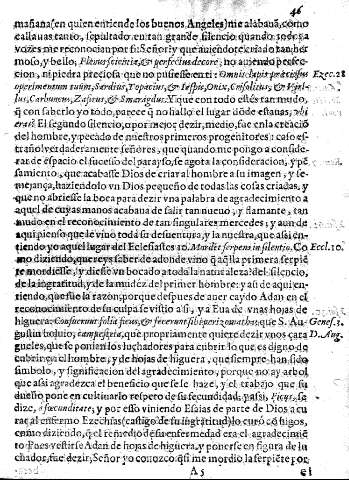 46
mañana (en quien entiende los buenos Angeles) me alabauã, como
callauas tanto, sepultado en tan grande silencio quando todos a
vozes me reconocian por su Señor? y que auiendote criado tan her-
moso, y bello, Plenus scientia, & perfectus decore, no auiendo perfec-
cion, ni piedra preciosa que no pusiesse en ti: Omnis lapis præciosus Ezec. 28
operimentum tuũ, Sardius, Topacius, & Iaspis, Onix, Crisolitus, & Beril-
lus, Carbuncus, Zafirus, & Smaragdus. Y que con todo estés tan mudo,
q̃ con saberlo yo todo, parece q̃ no hallo el lugar dõde estauas, vbi
eras? El segundo silencio, o por mejor dezir, medio, fue en la creaciõ
del hombre, y pecado de nuestros primeros progenitores: caso es-
traño! verdaderamente señores, que quando me pongo a conside-
rar de espacio el sucesso del parayso, se agota la consideracion, y pẽ-
samiento, que acabasse Dios de criar al hombre a su imagen, y se-
mejança, haziendolo vn Dios pequeño de todas las cosas criadas, y
que no abriesse la boca para dezir vna palabra de agradecimiento a
aquel de cuyas manos acababa de salir tan nueuo, y flamante, tan
mudo en el reconocimiento de tan singulares mercedes, y aun de
aqui pienso que le vino toda su desuentura, y la nuestra, que assi en-
tiendo yo aquel lugar del Eclesiastes 10. Mordet serpens in silentio. Co Eccl. 10.
mo diziendo, quereys saber de adonde vino q̃ aq̃lla primera serpiẽ
te mordiesse, y diesse vn bocado a toda la naturaleza? del silencio,
de la ingratitud, y de la mudéz del primer hombre: y assi de aqui en-
tiendo, que fue la razon, porque despues de auer caydo Adan en el
reconocimiento de su culpa se vistio a si, y a Eua de vnas hojas de
higuera: Consuerunt folia ficus, & fecerunt sibi perizomatha: que S. Au- Genes. 3.
gustin boluio, campestria, que propriamente quiere dezir vnos çara D. Aug.
gueles, que se ponian los luchadores para cubrir lo que es digno de
cubrir en el hombre, y de hojas de higuera, que siempre han sido
simbolo, y significacion del agradecimiento, porque no ay arbol
que assi agradezca el beneficio que se le haze, y el trabajo que su
dueño pone en cultiuarlo respeto de su fecundidad, y assi, Ficus, se
dize, à fœcunditate; y por esso viniendo Esaias de parte de Dios a cu
rar al enfermo Ezechias (castigo de su ingratitud) lo curó co higos,
como diziendo, q̃ el remedio de su enfermedad era el agradecimiẽ
to: Pues vestirse Adan de hojas de higuera, y ponerse en figura de lu
chador, fue dezir, Señor yo conozco q̃ si me mordio la serpiẽte por
A 5 el